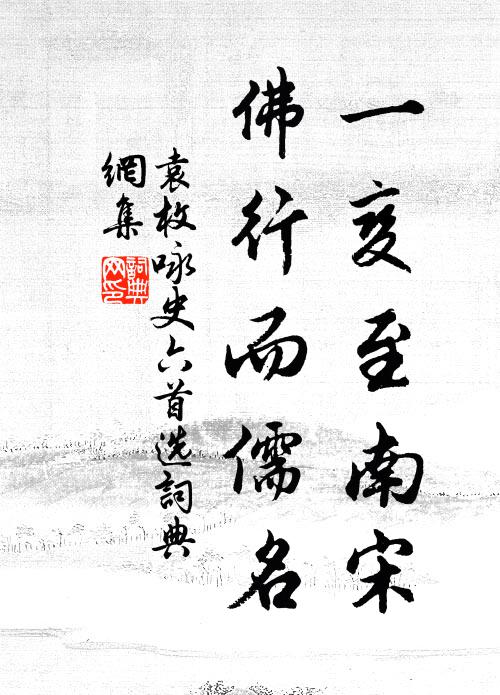 一变至南宋
佛行而儒名
袁枚咏史六首选詞典
網集
詞典網印